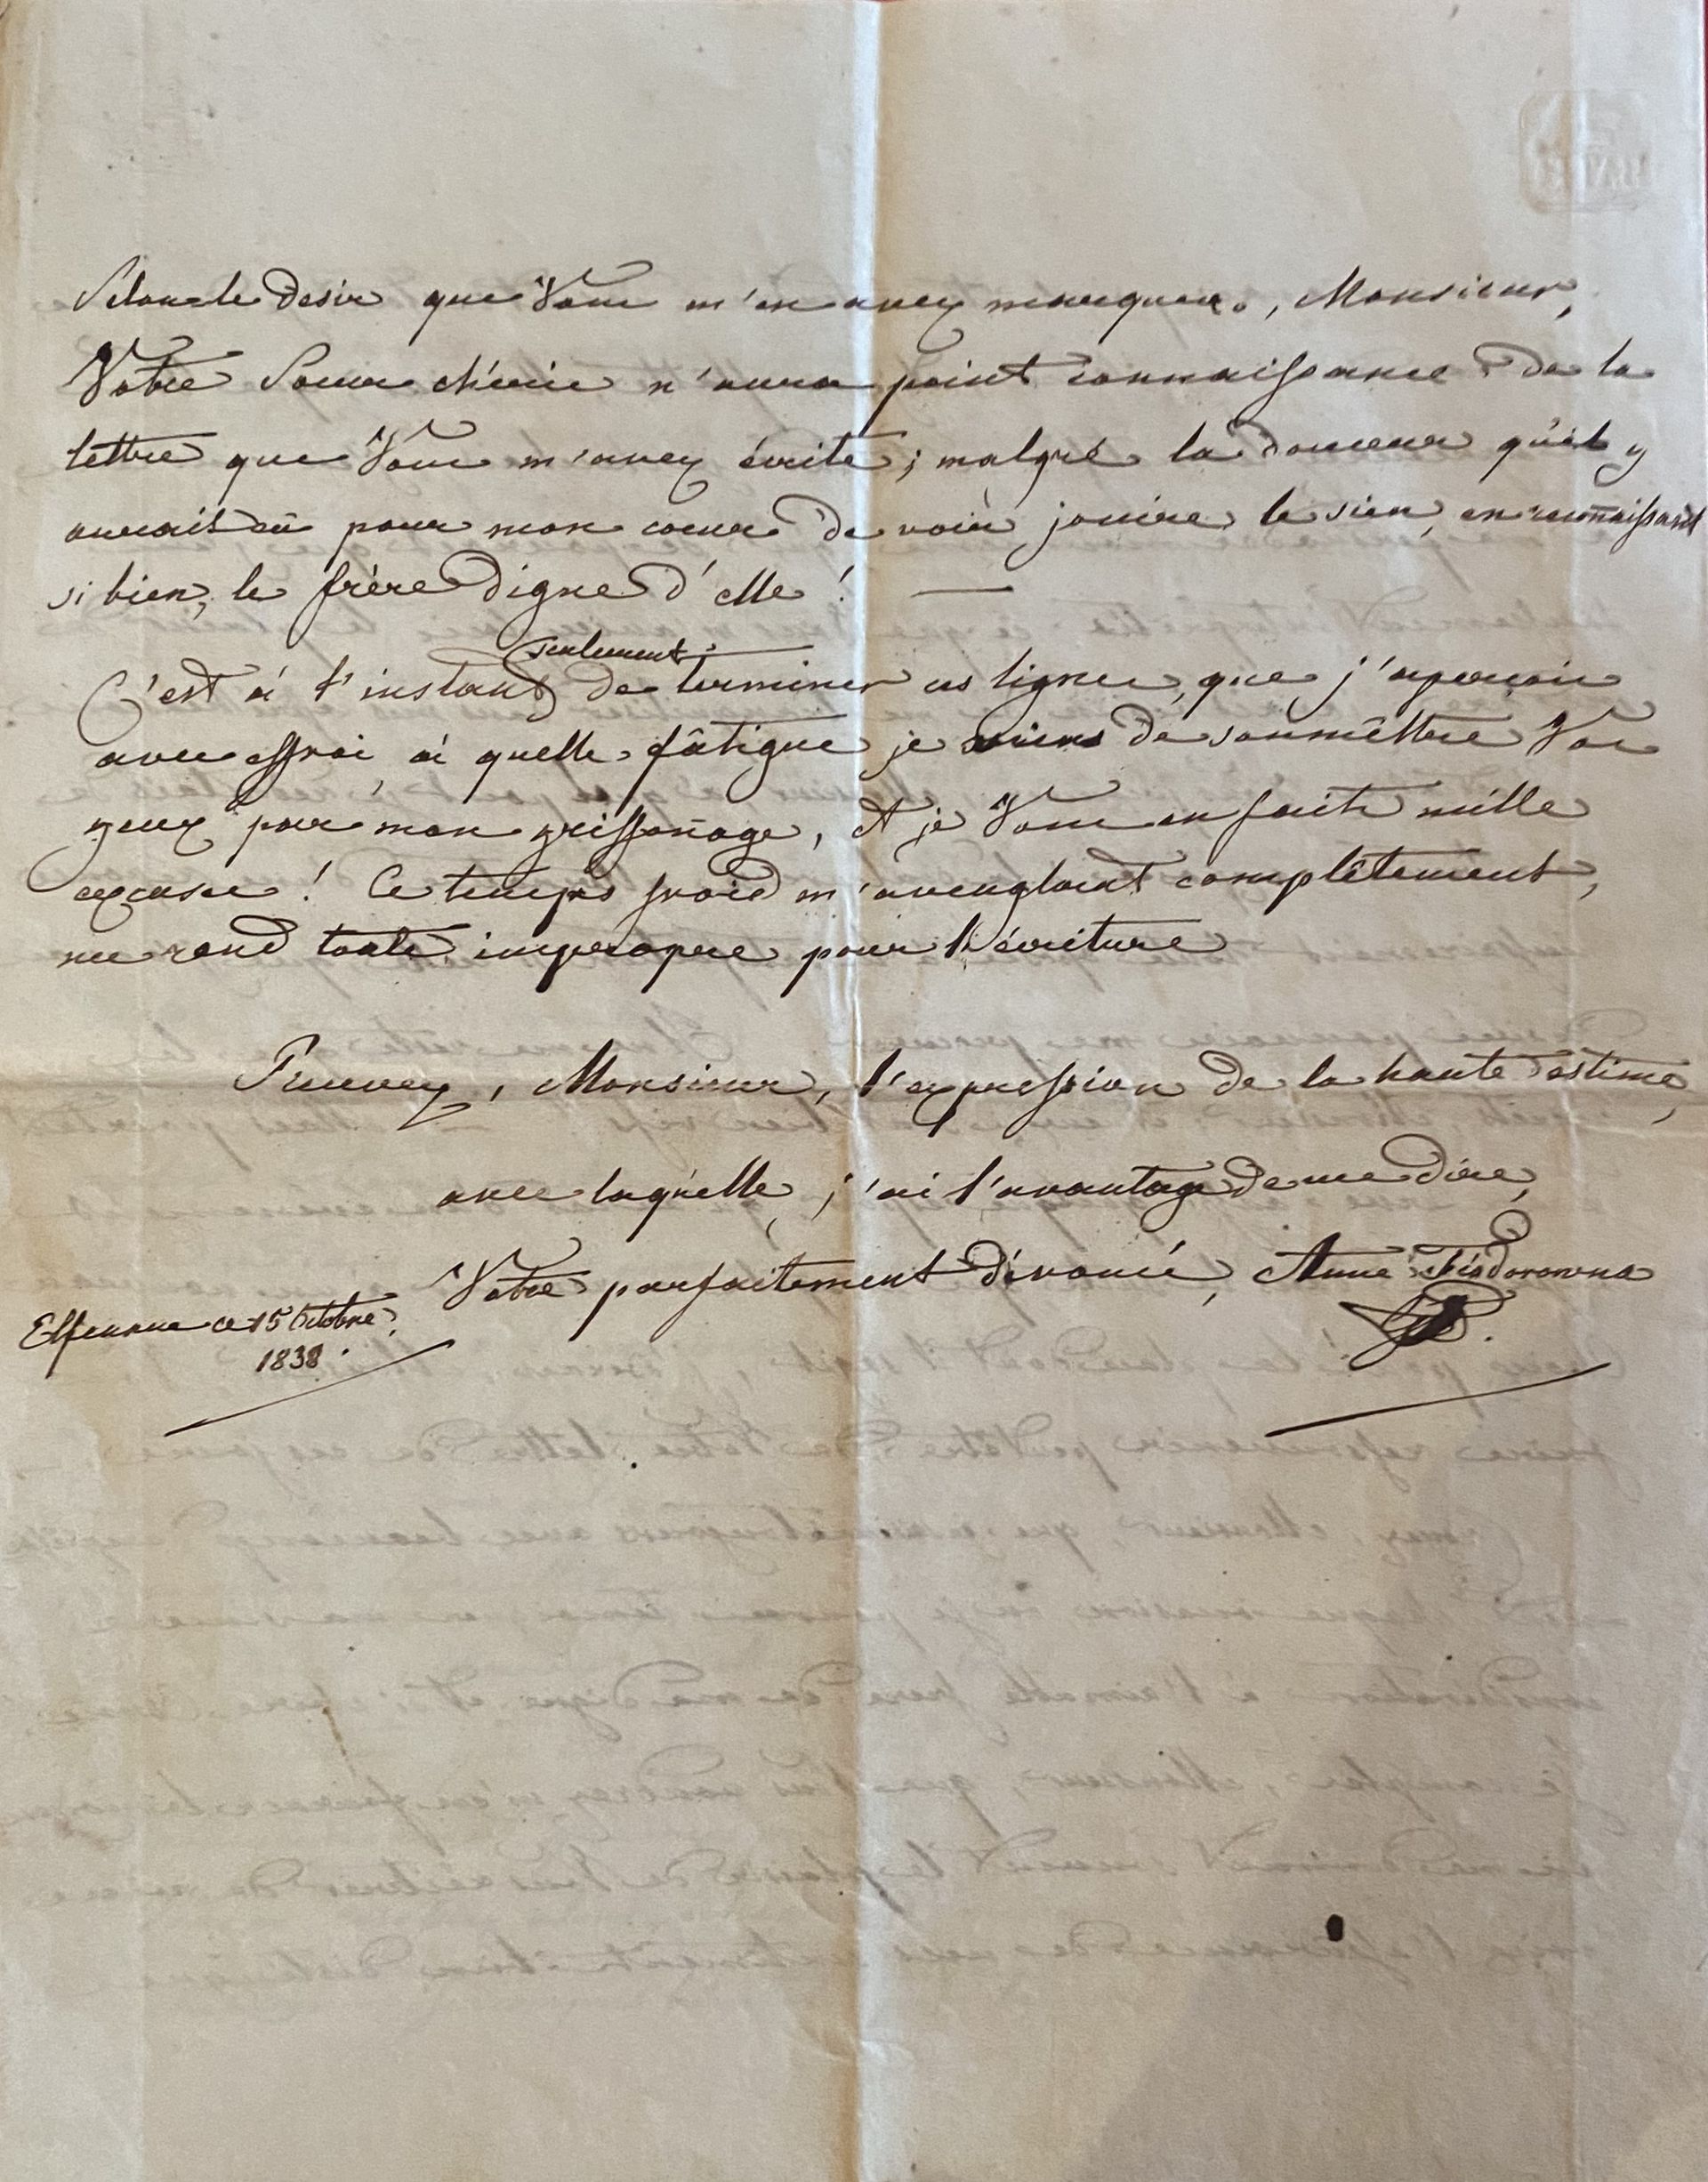 Selon le desir que Vous m'en avez marquer, Monsieur,
Votre Soeur chérie n'aura point connaissance de la
lettre que Vous m'avez écrite; malgré la douceur qu'il y
aurait eû pour mon coeur de voir jouire le sien, en reconnaissant
si bien, le frère digne d'elle! —
seulement
C'est à l'instant de terminer ces lignes, que j'aperçois
avec effroi, à quelle fâtigue je viens de soumêttre Vos
yeux par mon griffonage, et je Vous en faits mille
excuses! Ce temps froid m'aveuglant complêtement,
me rend toute impropre pour l'écriture
Recevez, Monsieur, l'expression de la haute estime,
avec laquelle, j'ai l'avantage de me dire,
Votre parfaitement dévouée, Anne Féodorowna
Elfenau ce 15 Octobre.
1838.